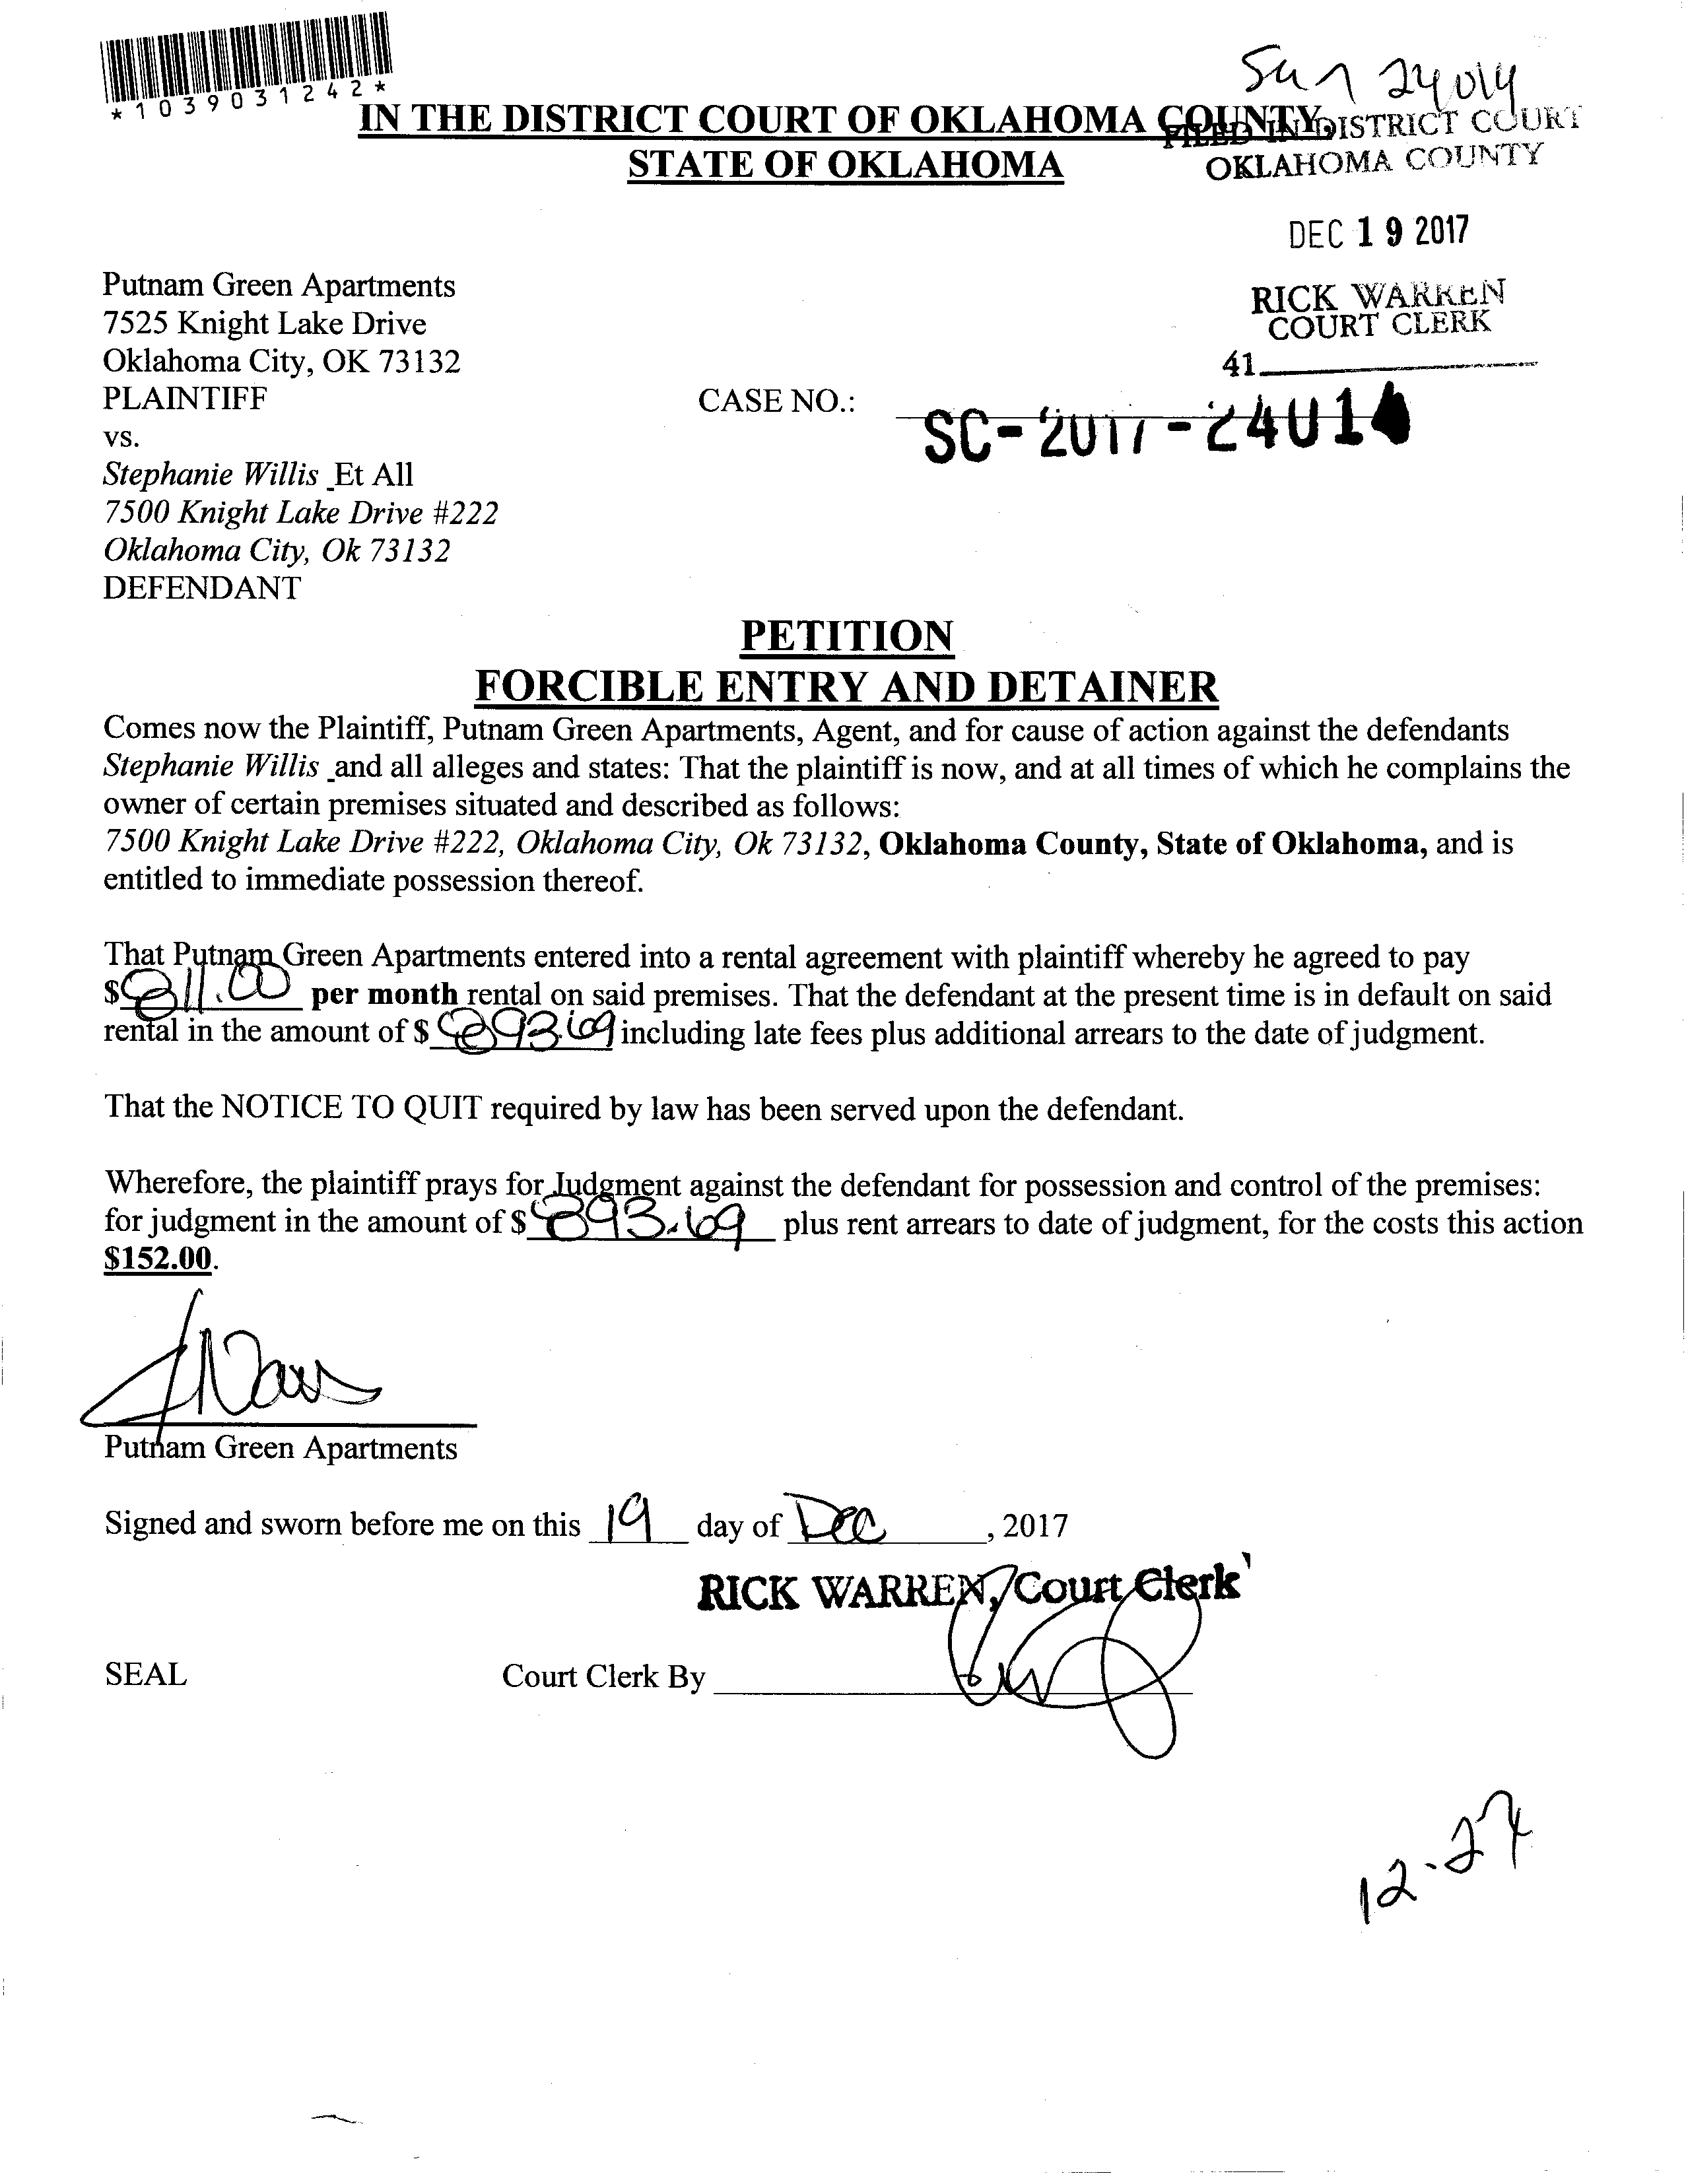 *1039031242*
Sun 24014
IN THE DISTRICT COURT OF OKLAHOMA COUNTY,
STATE OF OKLAHOMA
FILED IN DISTRICT COURT
OKLAHOMA COUNTY
DEC 19 2017
RICK WARREN
COURT CLERK
41
Putnam Green Apartments
7525 Knight Lake Drive
Oklahoma City, OK 73132
PLAINTIFF
CASE NO.: SC-2017-24014
vs.
Stephanie Willis Et All
7500 Knight Lake Drive #222
Oklahoma City, Ok 73132
DEFENDANT
PETITION
FORCIBLE ENTRY AND DETAINER
Comes now the Plaintiff, Putnam Green Apartments, Agent, and for cause of action against the defendants
Stephanie Willis and all alleges and states: That the plaintiff is now, and at all times of which he complains the
owner of certain premises situated and described as follows:
7500 Knight Lake Drive #222, Oklahoma City, Ok 73132, Oklahoma County, State of Oklahoma, and is
entitled to immediate possession thereof.
That Putnam Green Apartments entered into a rental agreement with plaintiff whereby he agreed to pay
$811.00 per month rental on said premises. That the defendant at the present time is in default on said
rental in the amount of $ 893.69 including late fees plus additional arrears to the date of judgment.
That the NOTICE TO QUIT required by law has been served upon the defendant.
Wherefore, the plaintiff prays for Judgment against the defendant for possession and control of the premises:
for judgment in the amount of $ 893.69 plus rent arrears to date of judgment, for the costs this action
$152.00.
Putnam Green Apartments
Signed and sworn before me on this 19 day of Dec, 2017
RICK WARREN, Court Clerk
SEAL
Court Clerk By
12-27